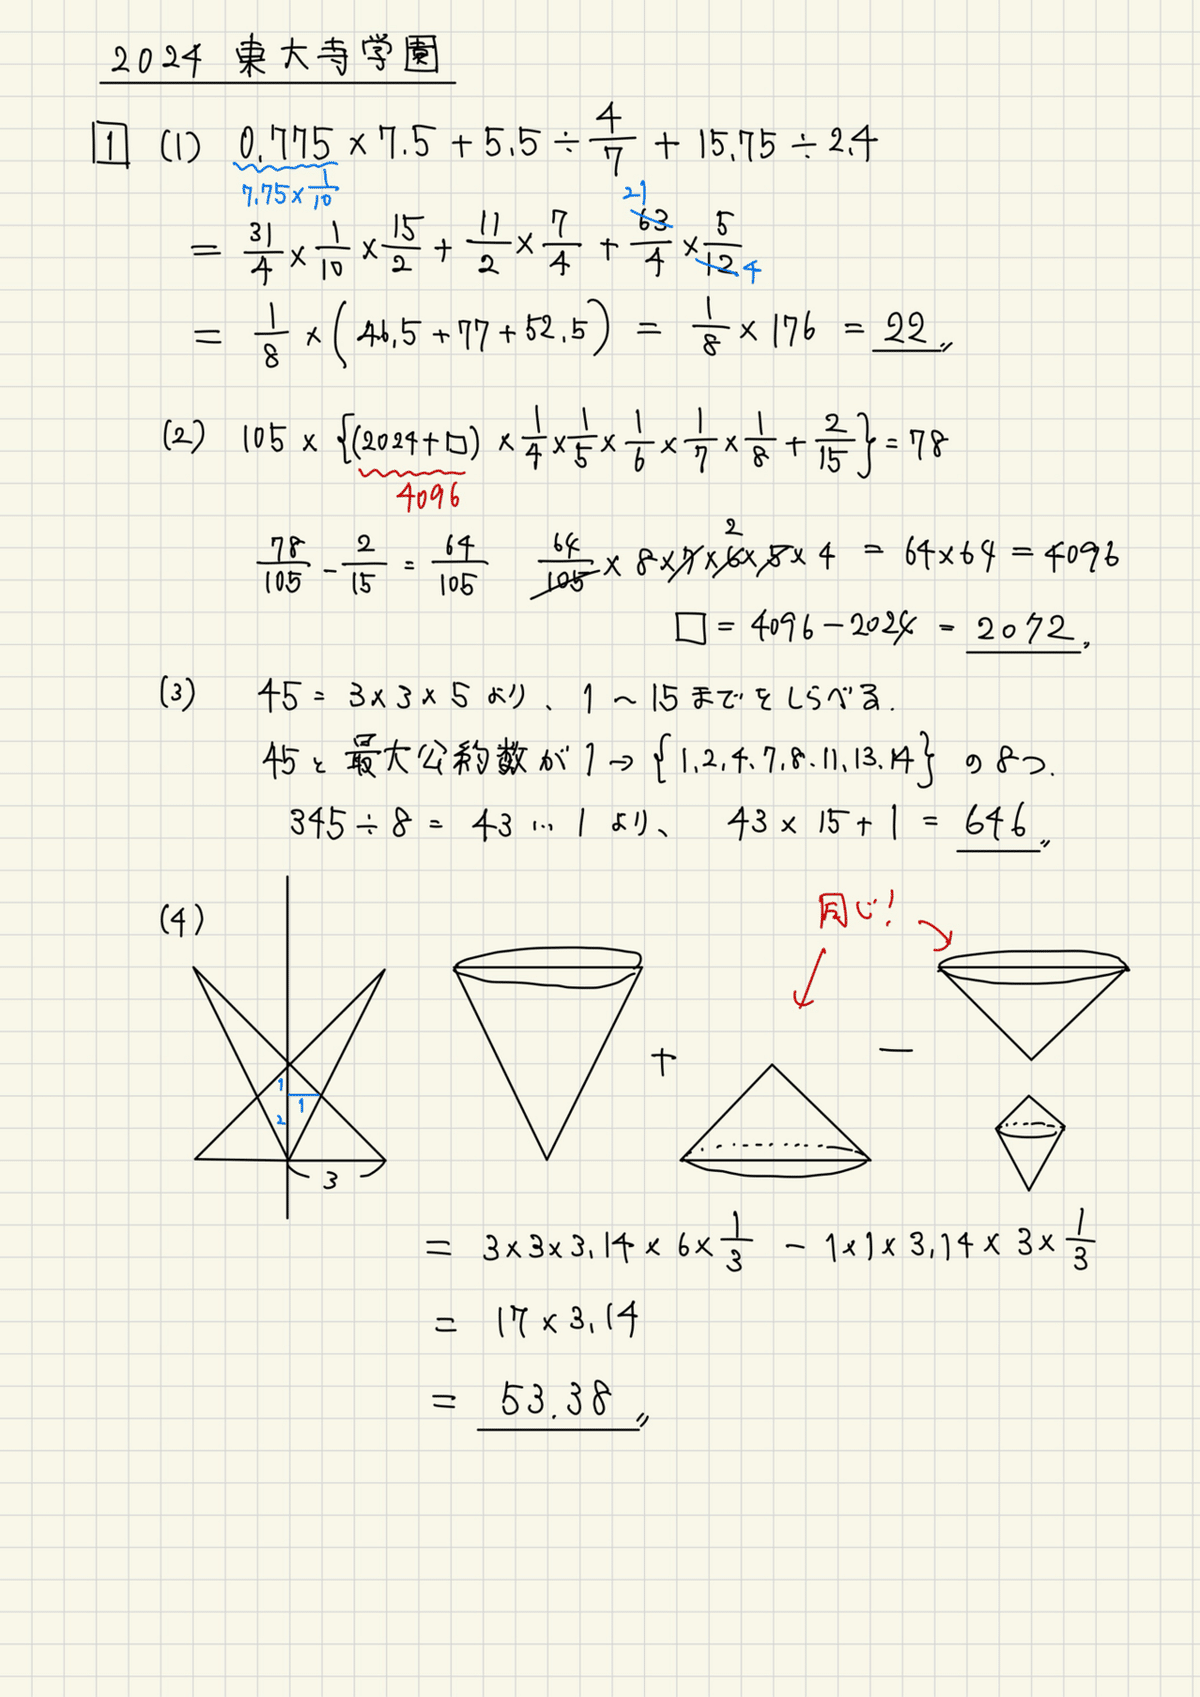 2024 東大寺学園
1 (1) 0.775 × 7.5 + 5.5 ÷ 4/7 + 15.75 ÷ 2.4
7.75 × 1/10
21
= 31/4 × 1/10 × 15/2 + 11/2 × 7/4 + 63/4 × 5/12
4
= 1/8 × (46.5 + 77 + 52.5) = 1/8 × 176 = 22〃
(2) 105 × {(2024+□) × 1/4 × 1/5 × 1/6 × 1/7 × 1/8 + 2/15} = 78
4096
2
78/105 - 2/15 = 64/105 64/105 × 8 × 7 × 6 × 5 × 4 = 64 × 64 = 4096
□ = 4096 - 2024 = 2072〃
(3) 45 = 3 × 3 × 5 より、1 〜 15 までをしらべる.
45と最大公約数が1 → {1, 2, 4, 7, 8, 11, 13, 14} の8つ.
345 ÷ 8 = 43 … 1 より、 43 × 15 + 1 = 646〃
(4) 同じ!
+ −
1
1
2
3
= 3 × 3 × 3.14 × 6 × 1/3 - 1 × 1 × 3.14 × 3 × 1/3
= 17 × 3.14
= 53.38〃